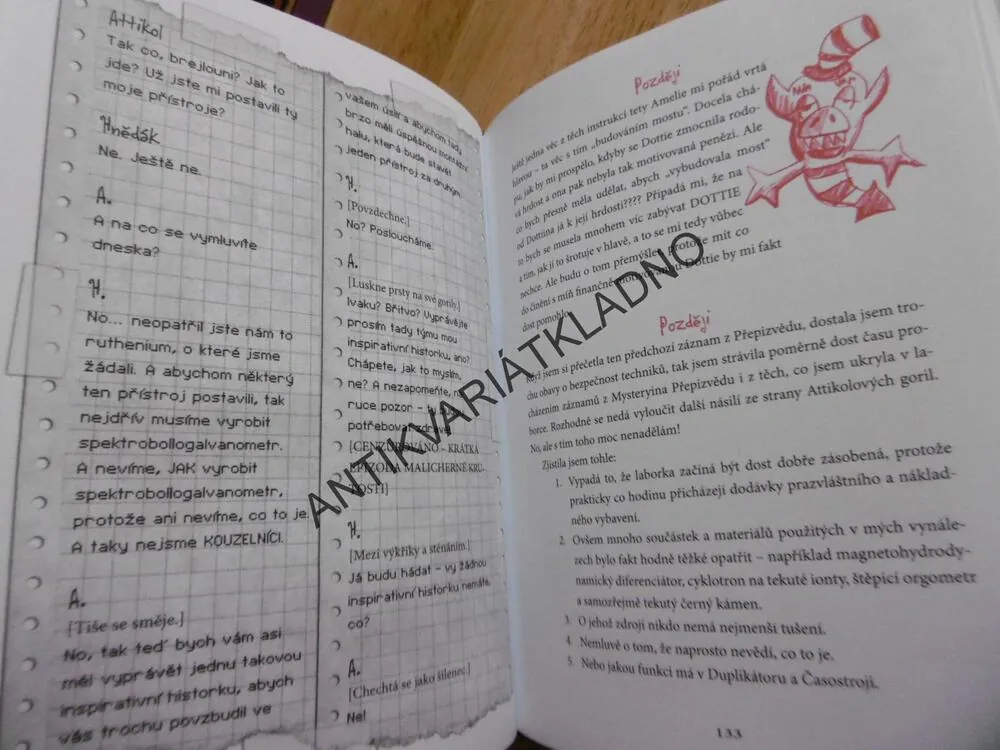 Attikol
Tak co, brejlouni? Jak to
jde? Už jste mi postavili ty
moje přístroje?
Hnědák
Ne. Ještě ne.
A.
A na co se vymluvíte
dneska?
H.
No... neopatřil jste nám to
ruthenium, o které jsme
žádali. A abychom některý
ten přístroj postavili, tak
nejdřív musíme vyrobit
spektrobollogalvanometr.
A nevíme, JAK vyrobit
spektrobollogalvanometr,
protože ani nevíme, co to je.
A taky nejsme KOUZELNÍCI.
A.
[Tiše se směje.]
No, tak teď bych vám asi
měl vyprávět jednu takovou
inspirativní historku, abych
vás trochu povzbudil ve
vašem úsilí a abychom tady
brzo měli úspěšnou montážní
halu, která bude stavět
jeden přístroj za druhým.
H.
[Povzdechne.]
No? Posloucháme.
A.
[Luskne prsty na své gorily.]
Ivaku? Břitvo? Vyprávějte
prosím tady týmu mou
inspirativní historku, ano?
Chápete, jak to myslím,
ne? A nezapomeňte, na
ruce pozor –
potřebovat zdravé.
[CENZUROVÁNO – KRÁTKÁ
EPIZODA MALICHERNÉ KRU-
TOSTI]
H.
[Mezi výkřiky a sténáním.]
Já budu hádat – vy žádnou
inspirativní historku nemáte,
co?
A.
[Chechtá se jako šílenec.]
Ne!
Později
Ještě jedna věc z těch instrukcí tety Amelie mi pořád vrtá
hlavou – ta věc s tím „budováním mostu“. Docela chá-
pu, jak by mi prospělo, kdyby se Dottie zmocnila rodo-
vá hrdost a ona pak nebyla tak motivovaná penězi. Ale
co bych přesně měla udělat, abych „vybudovala most“
od Dottiina já k její hrdosti???? Připadá mi, že na
to bych se musela mnohem víc zabývat DOTTIE
a tím, jak jí to šrotuje v hlavě, a to se mi tedy vůbec
nechce. Ale budu o tom přemýšlet, protože mít co
do činění s míň finančně motivovanou Dottie by mi fakt
dost pomohlo.
Později
Když jsem si přečetla ten předchozí záznam z Přepizvědu, dostala jsem tro-
chu obavy o bezpečnost techniků, tak jsem strávila poměrně dost času pro-
cházením záznamů z Mysteryina Přepizvědu i z těch, co jsem ukryla v la-
borce. Rozhodně se nedá vyloučit další násilí ze strany Attikolových goril.
No, ale s tím toho moc nenadělám!
Zjistila jsem tohle:
1. Vypadá to, že laborka začíná být dost dobře zásobená, protože
prakticky co hodinu přicházejí dodávky prazvláštního a náklad-
ného vybavení.
2. Ovšem mnoho součástek a materiálů použitých v mých vynále-
zech bylo fakt hodně těžké opatřit – například magnetohydrody-
namický diferenciátor, cyklotron na tekuté ionty, štěpící orgometr
a samozřejmě tekutý černý kámen.
3. O jehož zdroji nikdo nemá nejmenší tušení.
4. Nemluvě o tom, že naprosto nevědí, co to je.
5. Nebo jakou funkci má v Duplikátoru a Časostroji.
133
ANTIKVARIÁTKLADNO